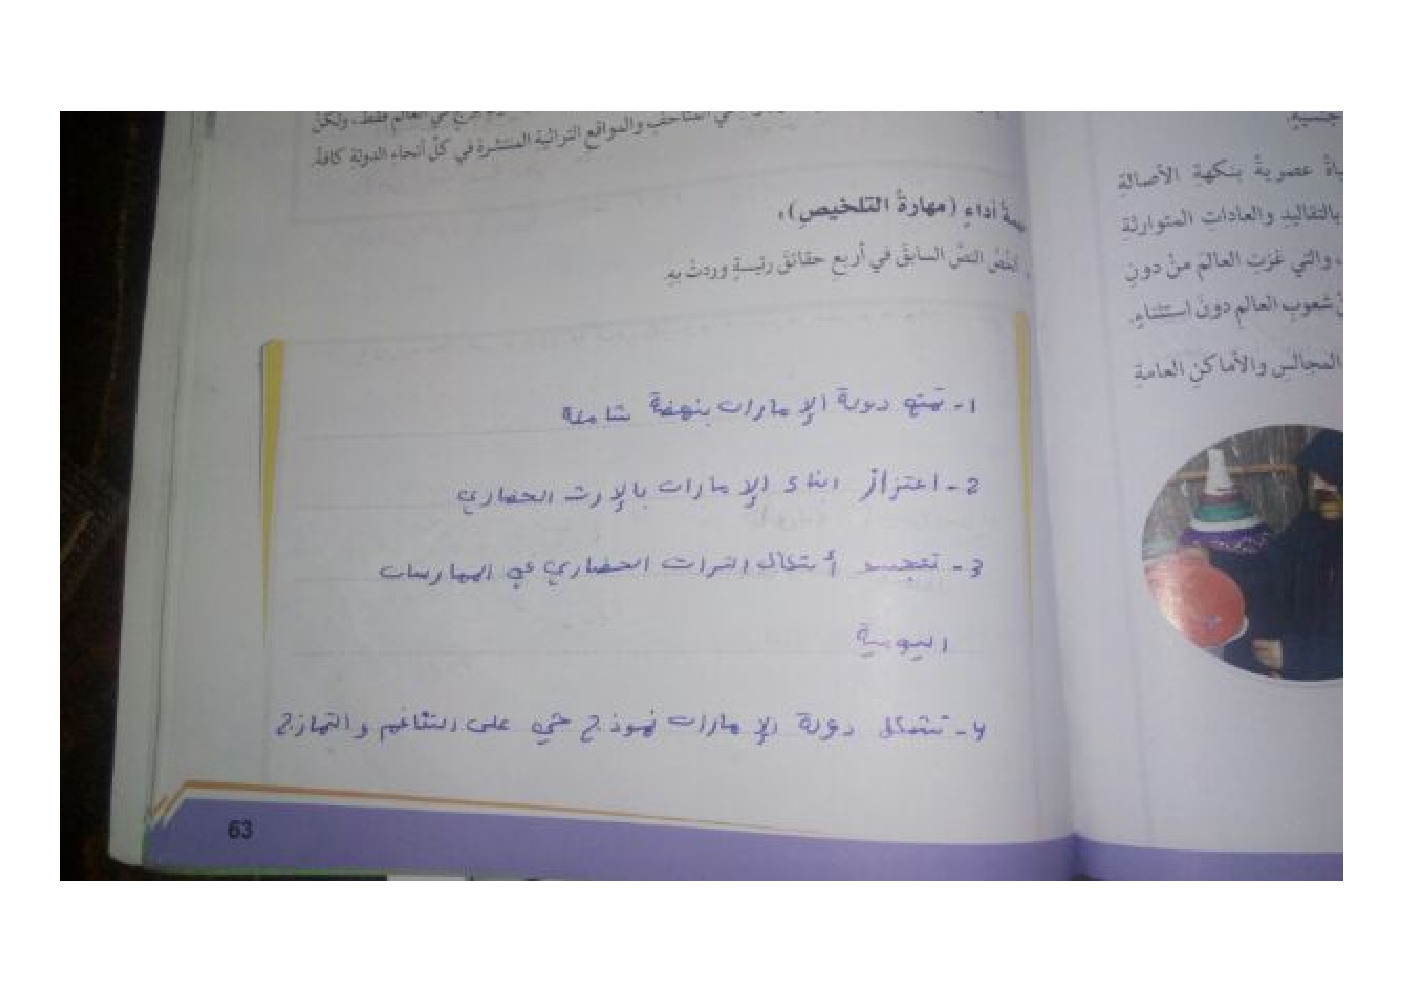 في المتاحف والمواقع التراثية المنتشرة في كل أنحاء الدولة كافة
في العالم فقط، ولكن
أداء (مهارة التلخيص):
النص السابق في أربع حقائق رئيسة وردت به
1- تمتع دولة الإمارات بنهضة شاملة
2- اعتزاز ابناء الإمارات بالإرث الحضاري
3- تتجسد أشكال التراث الحضاري في الممارسات
اليومية
4- تشكل دولة الإمارات نموذج حي على التناغم والتمازج
63
جنسية.
عصرية بنكهة الأصالة
بالتقاليد والعادات المتوارثة
، والتي غزت العالم من دون
شعوب العالم دون استثناء.
المجالس والأماكن العامة